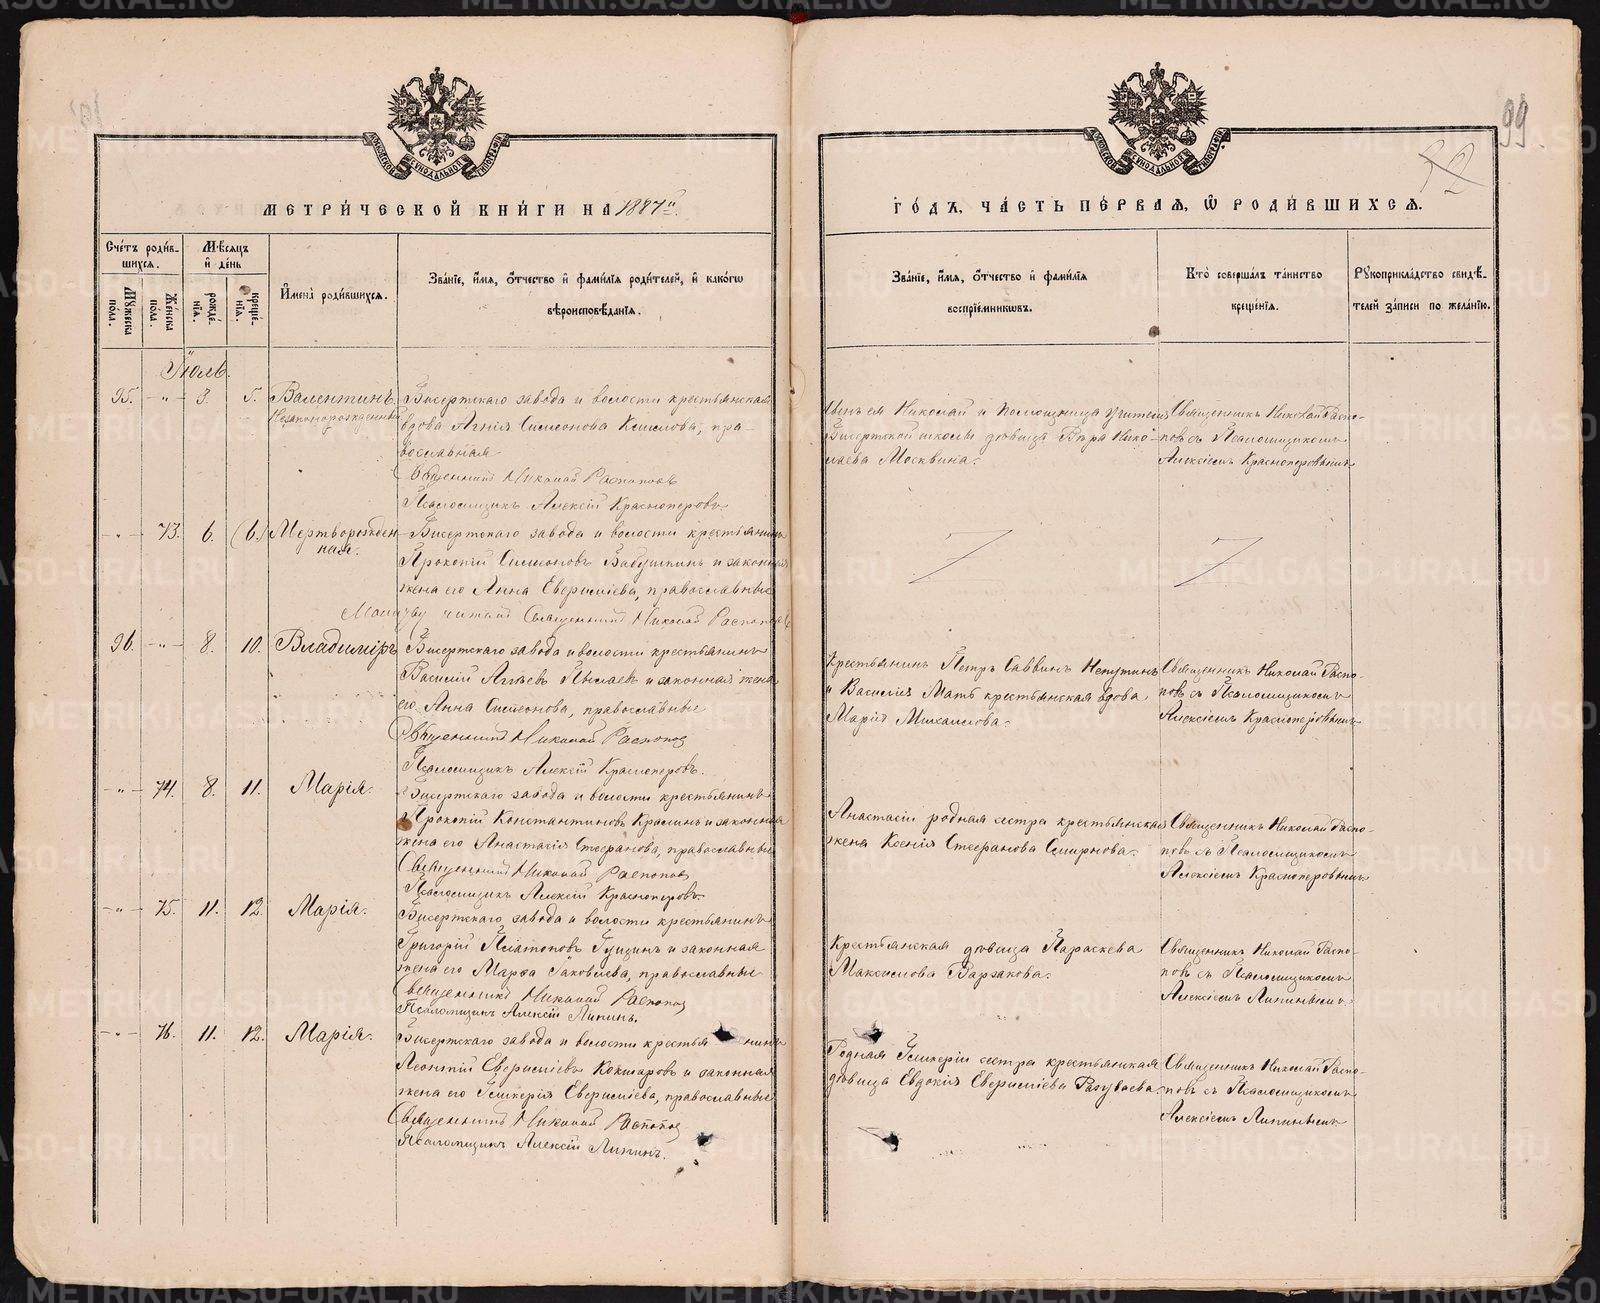 МЕТРИЧЕСКОЙ КНИГИ НА 1887й
Счетъ родив-
шихся.
Мѣсяцъ
и день
Мужеска
пола.
Женска
пола.
рожде-
нія.
креще-
нія.
Имена родившихся.
Званіе, имя, отчество и фамилія родителей, и какогѡ
вѣроисповѣданія.
Іюль.
95. -"- 3. 5. Валентинъ
Незаконорожденный
Бисертскаго завода и волости крестьянская
вдова Агнія Симеонова Кислова, пра-
вославная
Священникъ Николай Распоповъ
Псаломщикъ Алексій Красноперовъ
-"- 73. 6. (6.) Мертворожден-
ная.
Бисертскаго завода и волости крестьянинъ
Прокопій Симеоновъ Бабушкинъ и законная
жена его Анна Еверисиѣева, православные
Молитву читалъ Священникъ Николай Распоповъ
96. -"- 8. 10. Владиміръ
Бисертскаго завода и волости крестьянинъ
Василій и законная жена
его Анна Симеонова, православные
Священникъ Николай Распопов
Псаломщикъ Алексій Красноперовъ.
-"- 74. 8. 11. Марія.
Бисертскаго завода и волости крестьянинъ
Прокопій Константиновъ Кралинъ и законная
жена его Анастасія Стефанова, православные
Священникъ Николай Распопов
Псаломщикъ Алексій Красноперовъ
-"- 75. 11. 12. Марія.
Бисертскаго завода и волости крестьянинъ
Григорій Платоновъ Гущинъ и законная
жена его Марѳа Іаковлева, православные
Священникъ Николай Распопов
Псаломщикъ Алексій Липинъ.
-"- 76. 11. 12. Марія.
Бисертскаго завода и волости крестьянинъ
Леонтій Кокшаровъ и законная
жена его Гликерія православные
Священникъ Николай Распопов
Псаломщикъ Алексій Липинъ.
99.
ГОДЪ, ЧАСТЬ ПЕРВАЯ, Ѡ РОДИВШИХСЯ.
Званіе, имя, отчество и фамилія
воспріемниковъ.
Кто совершалъ таинство
крещенія.
Рукоприкладство свидѣ-
телей записи по желанію.
Сынъ ея Николай и помощница учителя
Бисертской школы дѣвица Вѣра Нико-
лаева Москвина.
Священникъ Николай Распо-
повъ съ Псаломщикомъ
Алексіемъ Красноперовымъ
Крестьянинъ Петръ Саввинъ Непутинъ
и Василія Мать крестьянская вдова
Марія Михаилова.
Священникъ Николай Распо-
повъ съ Псаломщикомъ
Алексіемъ Красноперовымъ
Анастасіи родная сестра крестьянская
жена Ксенія Стефанова Смирнова.
Священникъ Николай Распо-
повъ съ Псаломщикомъ
Алексіемъ Красноперовымъ
Крестьянская дѣвица Параскева
Максимова Варзакова.
Священникъ Николай Распо-
повъ съ Псаломщикомъ
Алексіемъ Липинымъ
Родная Гликеріи сестра крестьянская
дѣвица Евдокія Разуваева
Священникъ Николай Распо-
повъ съ Псаломщикомъ
Алексіемъ Липинымъ
METRIKI.GASO-URAL.RU